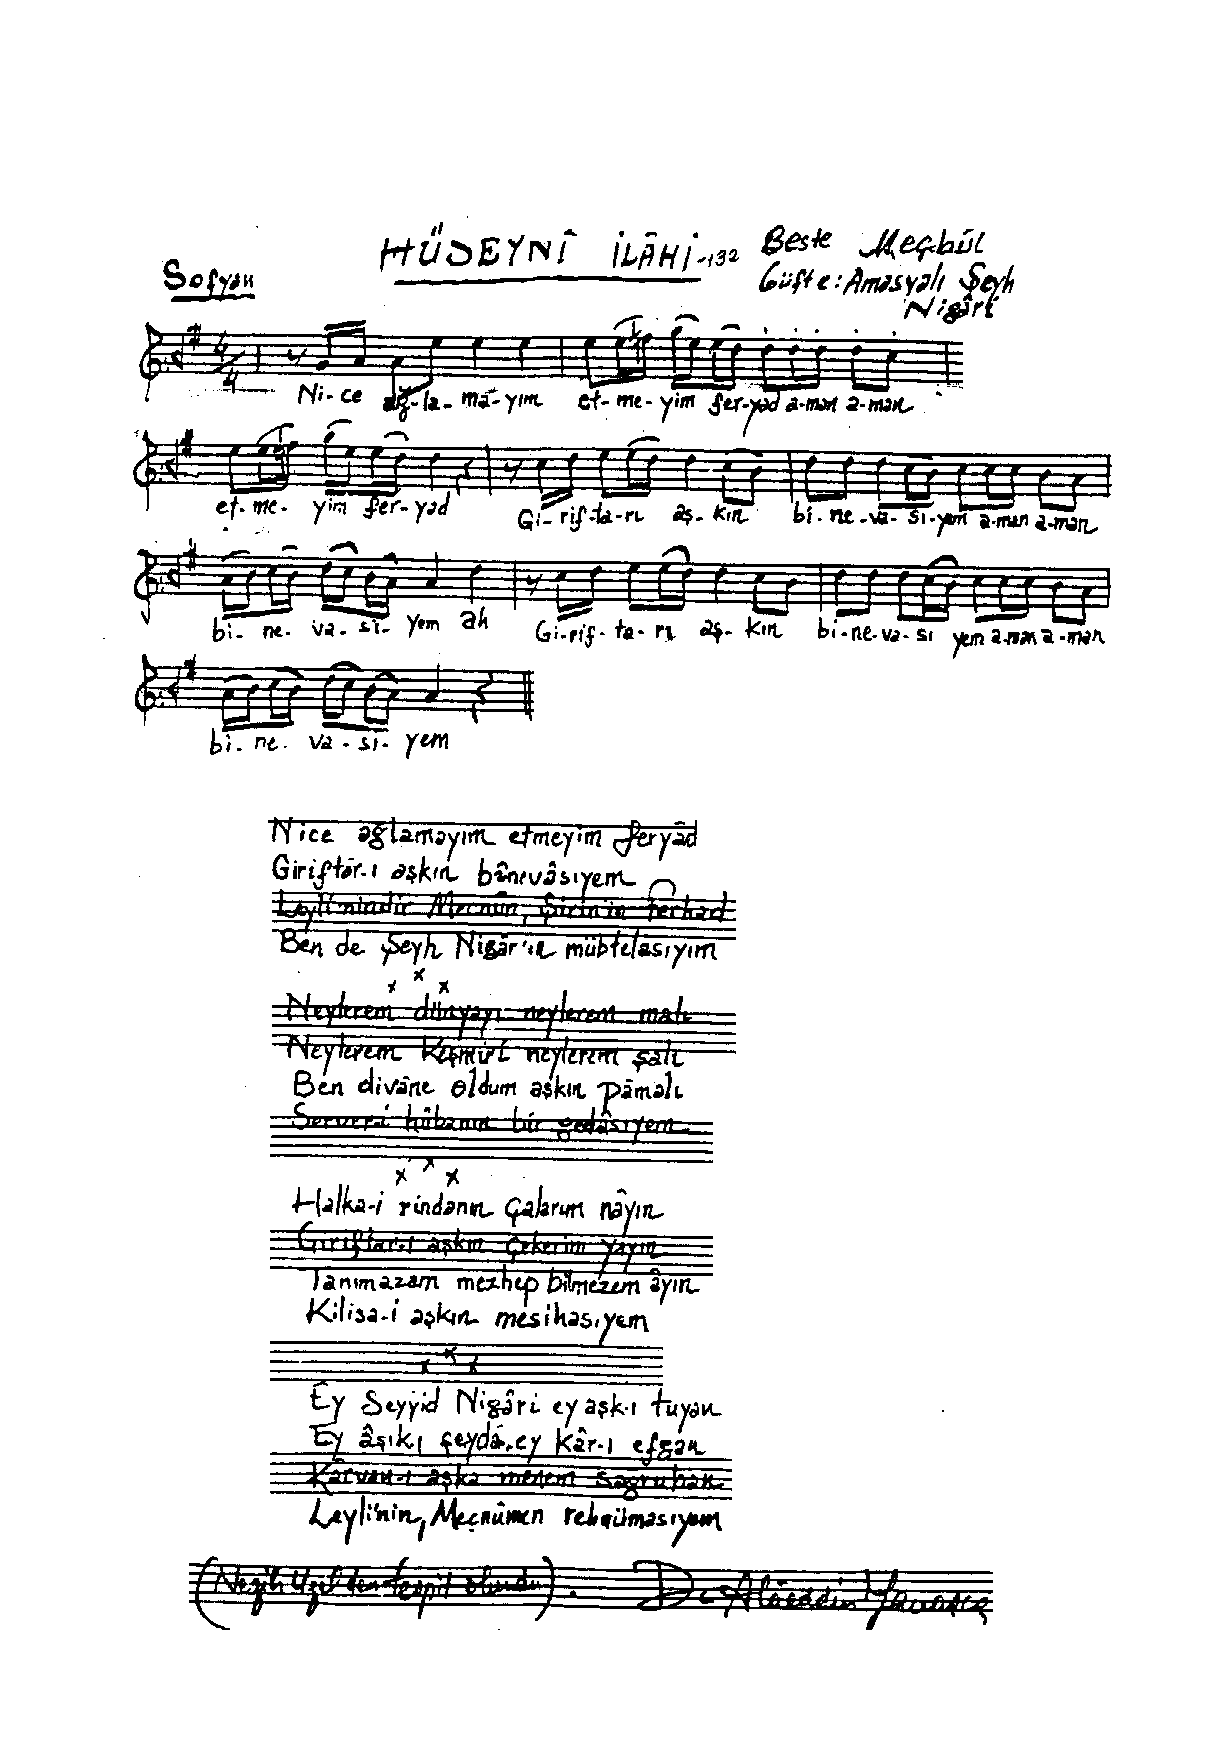 HÜSEYNÎ İLÂHİ -132
Beste Meçhûl
Sofyan
Güfte: Amasyalı Şeyh
Nigârî
4/4
Ni-ce ağ-la-ma-yım et-me-yim fer-yad a-man a-man
et-me-yim fer-yad Gi-rif-ta-rı aş-kın bi-ne-va-sı-yem a-man a-man
bi-ne-va-sı-yem ah Gi-rif-ta-rı aş-kın bi-ne-va-sı yem a-man a-man
bi-ne-va-sı-yem
Nice ağlamayım etmeyim feryâd
Giriftâr-ı aşkın bânevâsıyem
Leylî'nindir Mecnûn, Şirin'in Ferhad
Ben de Şeyh Nigâr'ın mübtelasıyım
x x x
Neylerem dünyayı neylerem malı
Neylerem Keşmiri neylerem şalı
Ben divâne oldum aşkın pâmalı
Server-i hûbanın bir gedâsıyem
x x x
Halka-i rindanın çalarım nâyın
Giriftar-ı aşkın çekerim yayın
Tanımazam mezhep bilmezem âyın
Kilisa-i aşkın mesihasıyem
x x x
Ey Seyyid Nigâri ey aşk-ı tuyan
Ey âşık-ı şeydâ, ey kâr-ı efgan
Kârvan-ı aşka menem
Leyli'nin, Mecnûnen
(Nezih Uzel'den tespit olundu). Dr. Alâeddin Yavaşça